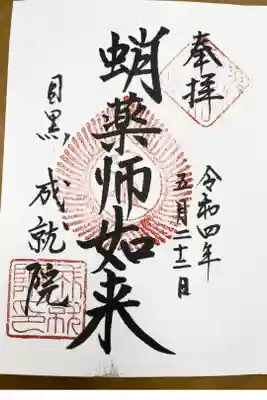 奉拝
令和四年
五月二十二日
蛸薬師如来
目黒 成就院